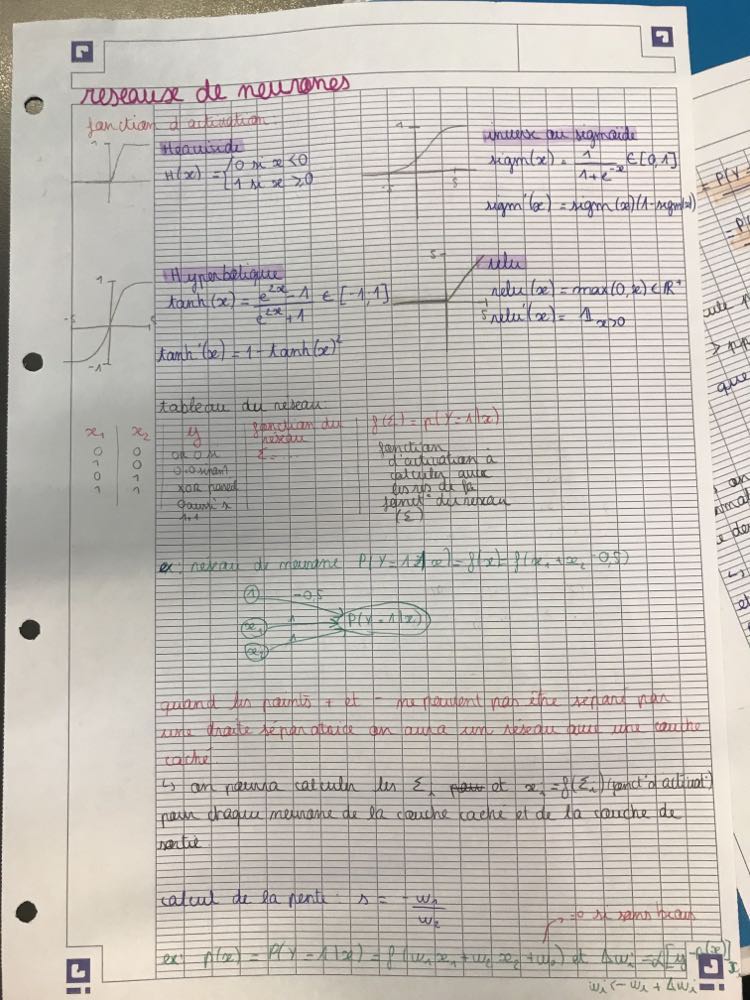 reseaux de neurones
fonction d'activation
Heaviside
H(x) = {0 si x < 0
{1 si x ≥ 0
1
inverse ou sigmoïde
sigm(x) = 1/(1+e^-x) ∈ [0,1]
sigm'(x) = sigm(x)(1-sigm(x))
1
-5
5
Hyperbolique
tanh(x) = (e^2x - 1)/(e^2x + 1) ∈ [-1,1]
tanh'(x) = 1 - tanh(x)²
1
-5
5
-1
relu
relu(x) = max(0,x) ∈ ℝ⁺
relu'(x) = 𝟙 x>0
5
5
tableau du reseau:
x₁ | x₂ | y | fonction du reseau | f(Σ) = p(Y=1|x)
0 | 0 | Σ = ... | fonction
1 | 0 | d'activation à
0 | 1 | calculer avec
1 | 1 | les res de la
fonct° du reseau
(Σ)
ex: reseau de neurone P(Y=1|x) = f(x) = f(x₁+x₂-0,5)
1 -0,5
x₁ 1 P(Y=1|x)
x₂ 1
quand les points + et - ne peuvent pas être séparé par
une droite séparatrice on aura un réseau avec une couche
caché
↳ on pourra calculer les Σᵢ et xᵢ = f(Σᵢ) (fonct° d'activat°)
pour chaque neurone de la couche caché et de la couche de
sortie
calcul de la pente : s = -w₁/w₂
=0 si sans biais
ex: p(x) = P(Y=1|x) = f(w₁x₁+w₂x₂+w₀) et Δwᵢ = α[y-p(x)]xᵢ
wᵢ <- wᵢ + Δwᵢ